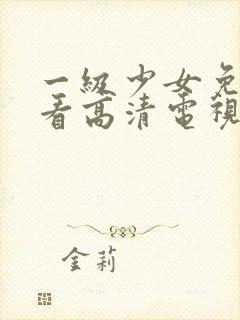 一級少女免
看高清電視
金莉